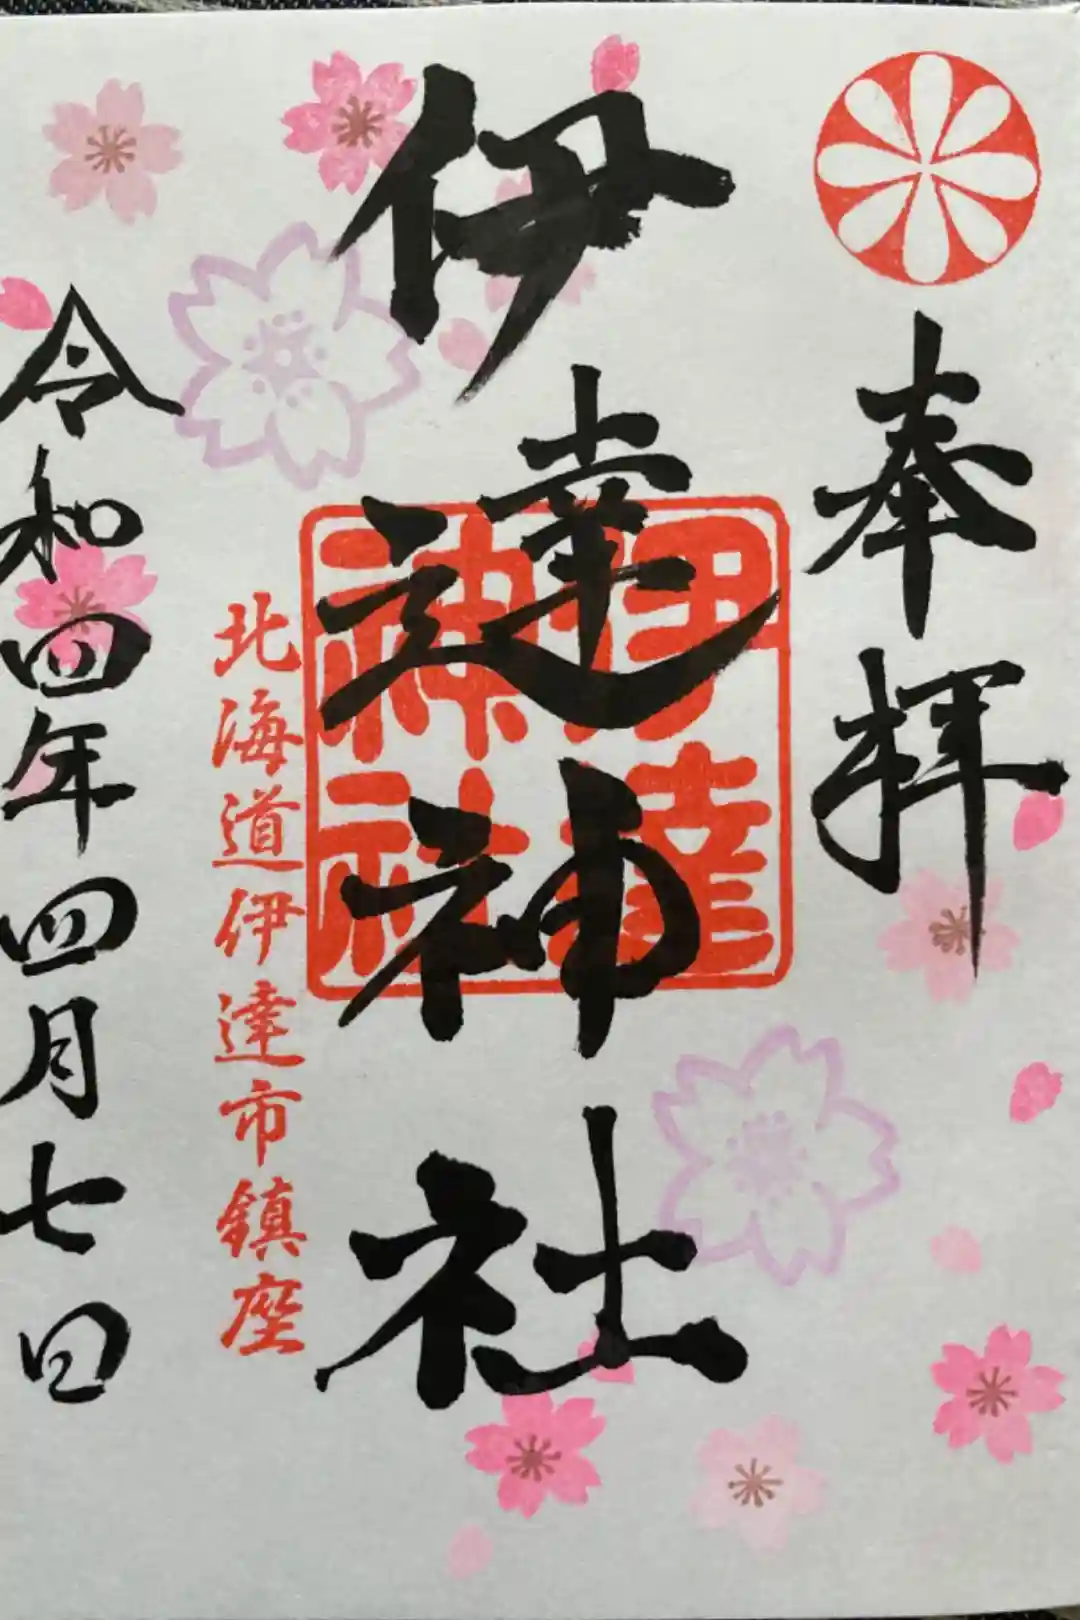 奉拝
伊達神社
伊達
神社
北海道伊達市鎮座
令和四年四月七日